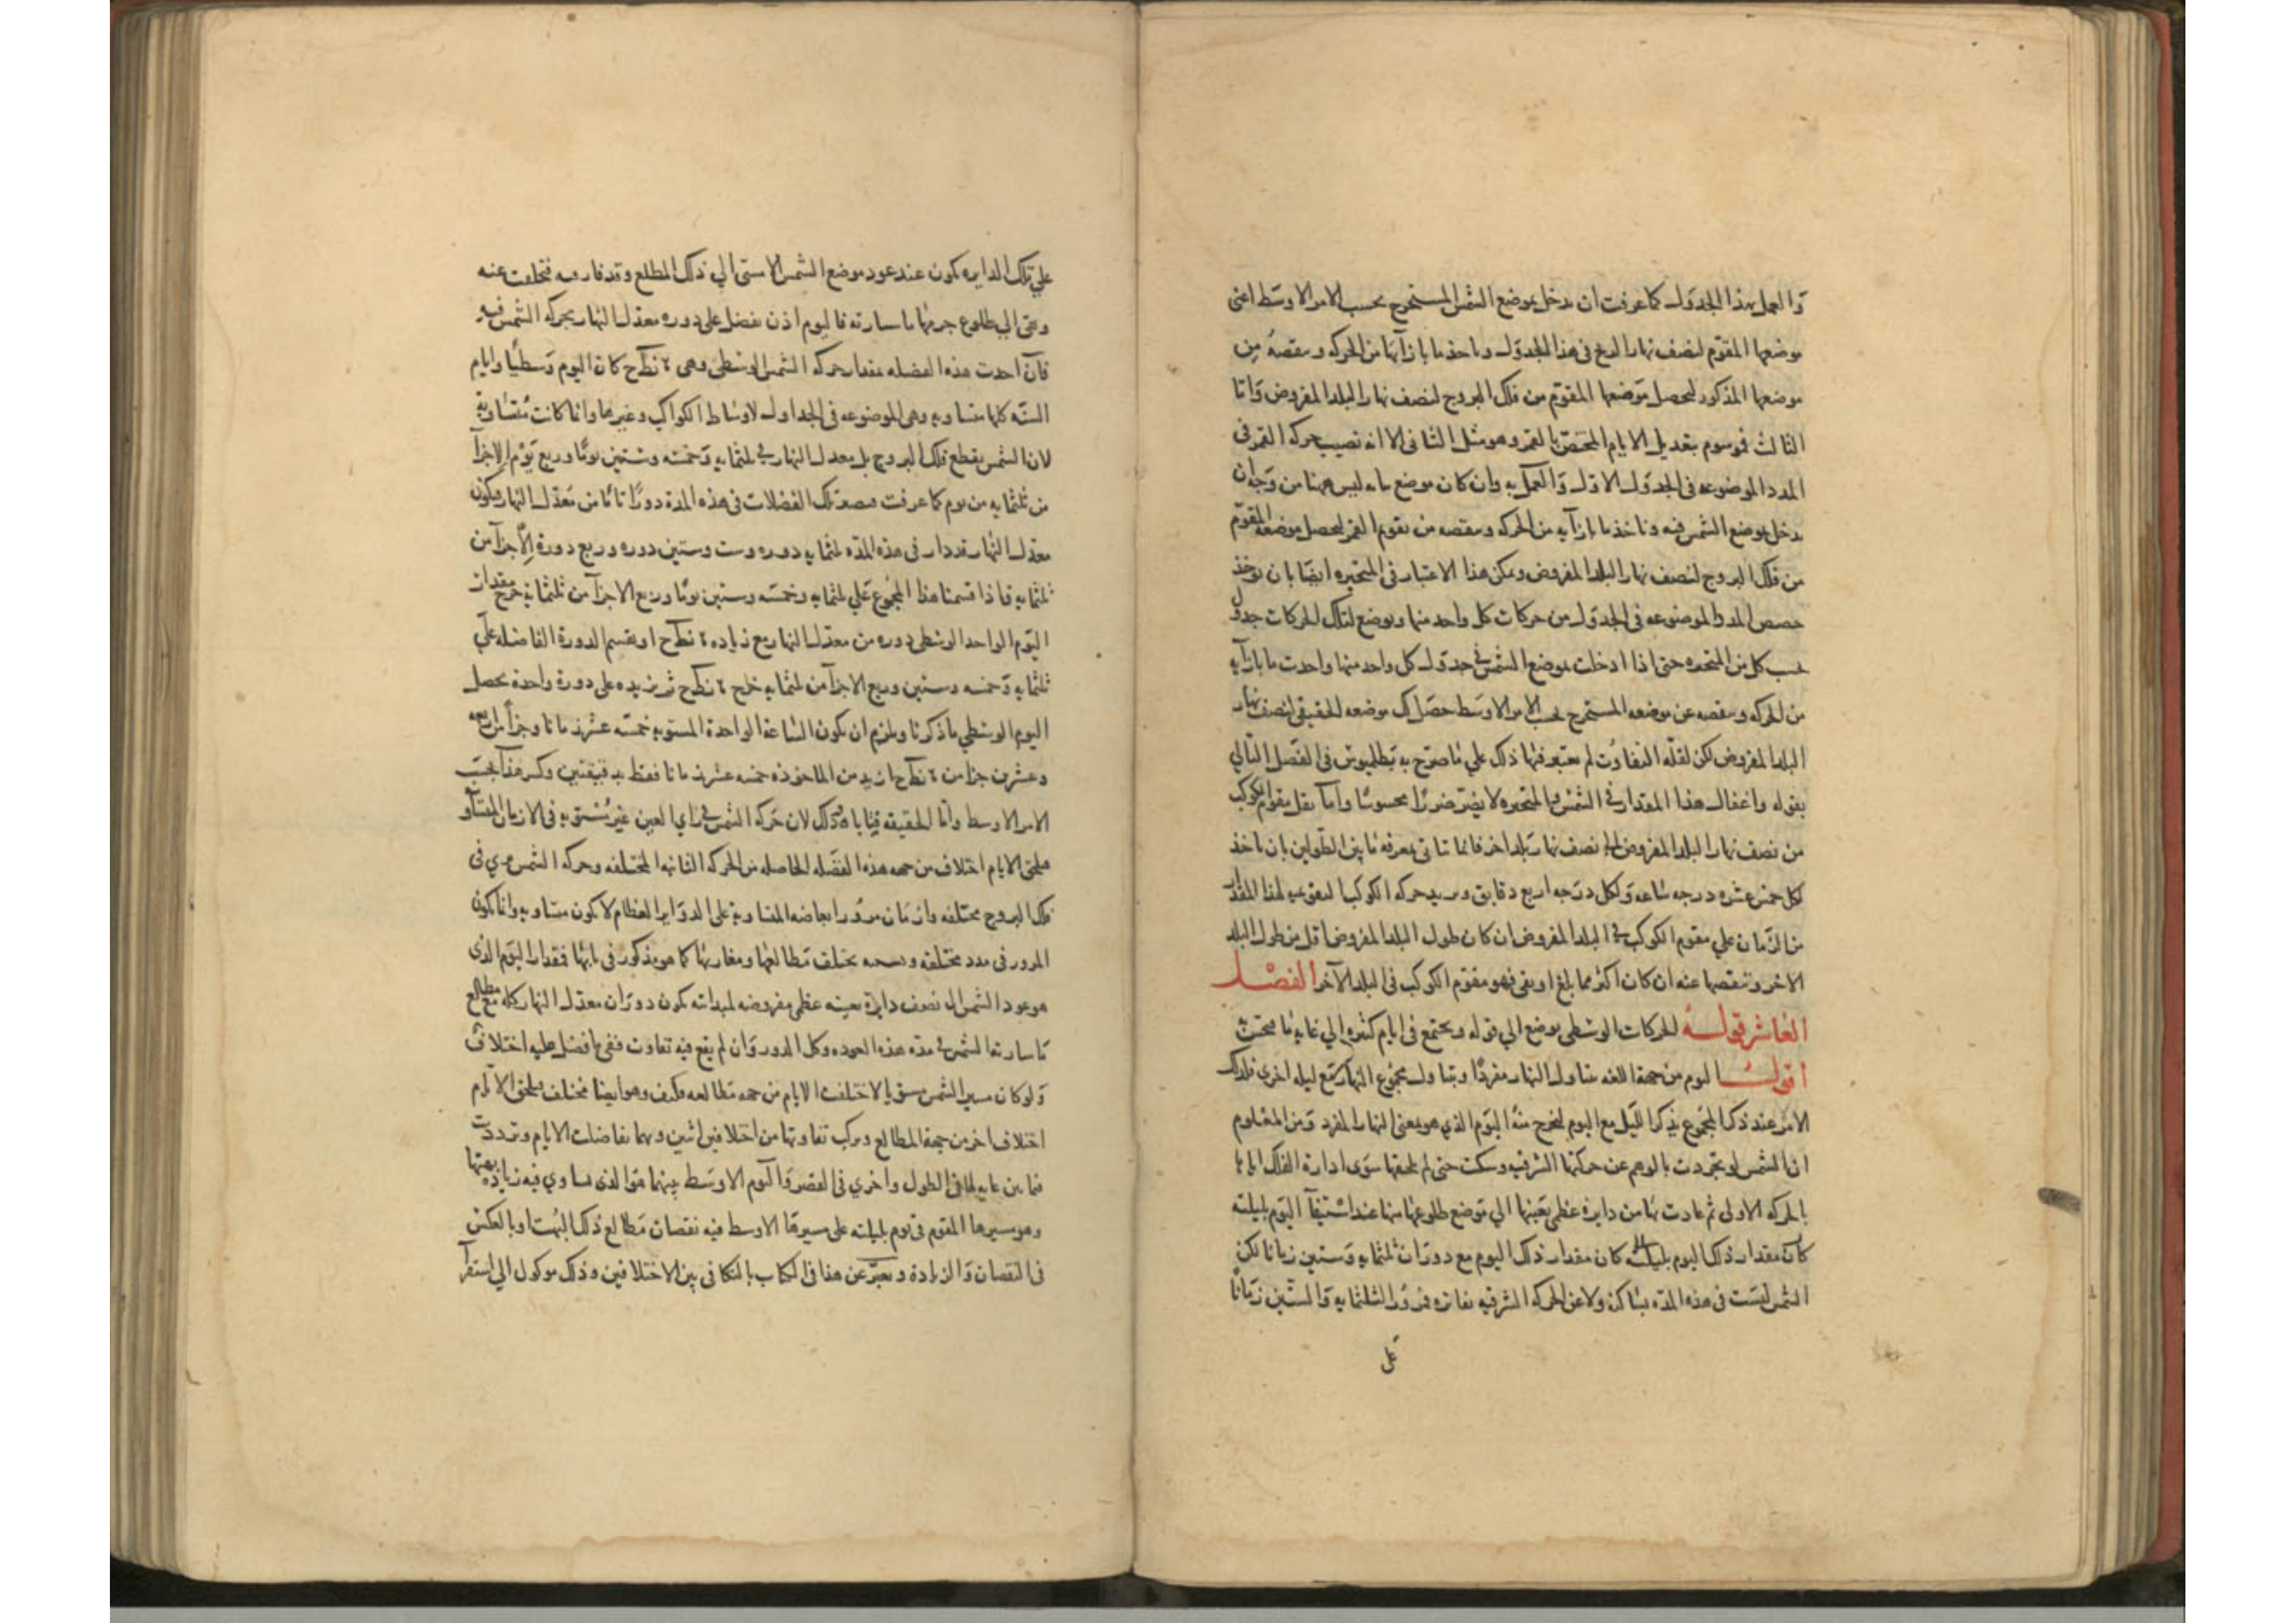 والعمل بهذا الجدول كما عرفت ان يدخل بموضع الشمس المستخرج بحسب الامر الاوسط اعنى
موضعها المقوم لنصف نهار فى هذا الجدول وياخذ ما بازآئها من الحركه وينقصه من
موضعها المذكور ليحصل موضعها المقوم من فلك البروج لنصف نهار البلد المفروض واما
الثالث فموسوم بتعديل الايام المختص بالقمر وهو مثل الثانى الا انه نصيب حركه القمر فى
المدد الموضوعه فى الجدول الاول والعمل به وان كان موضع ليس ههنا من وجه ان
يدخل بموضع الشمس فيه وناخذ ما بازآيه من الحركه وينقصه من تقويم القمر ليحصل موضعه المقوم
من فلك البروج لنصف نهار البلد المفروض ويمكن هذا الاعتبار فى المتحيره ايضا بان يوخذ
حصص المدد الموضوعه فى الجدول من حركات كل واحد منها ويوضع لتلك الحركات جدول
بحسب كل من المتحيره حتى اذا ادخلت بموضع الشمس فى جدول كل واحد منها واخذت ما بازآيه
من الحركه وينقصه عن موضعه المستخرج بحسب الامر الاوسط حصل لك موضعه الحقيقى لنصف نهار
البلد المفروض لكن لقله التفاوت لم يعتبر فيها ذلك على ما صرح به بطلميوس فى الفصل التالي
بقوله واغفال هذا المقدار فى الشمس والمتحيره لا يضر ضررا محسوسا واما نقل مقوم الكوكب
من نصف نهار البلد المفروض الى نصف نهار بلد اخر فانما تاتى بمعرفه ما بين الطولين بان ياخذ
لكل خمس عشره درجه ساعه ولكل درجه اربع دقايق ويزيد حركه الكوكب لهذا المقدار
من الزمان علي مقوم الكوكب فى البلد المفروض ان كان طول البلد المفروض اقل من طول البلد
الاخر وتنقصها عنه ان كان اكثر مما بلغ او بقى فهو مقوم الكوكب فى البلد الآخر الفصل
العاشر قوله للحركات الوسطى يوضع الي قوله ويجتمع فى ايام كثيره الي غايه ما محسوس
اقول اليوم من جهة اللغه يتناول النهار مفردا ويتناول مجموع النهار مع ليله اخرى فلذلك
الامر عند ذكر المجموع يذكر الليل مع اليوم ليخرج منه اليوم الذي هو بمعنى النهار المفرد ومن المعلوم
ان الشمس لو تجردت بالوهم عن حركتها الشرقيه وسكنت حتى لم يلحقها سوى ادارة الفلك اياها
بالحركه الاولى ثم عادت بها من دايرة عظمى بعينها الي موضع طلوعها منها عند استيفآ اليوم بليلته
كان مقدار ذلك اليوم بليلته كان مقدار ذلك اليوم مع دوران ثلثمايه وستين زمانا لكن
الشمس ليست فى هذه المده بساكنه ولا عن الحركه الشرقيه الثلثمايه والستين زمانا
على
علي تلك الدايره يكون عند عود موضع الشمس الي ذلك المطلع وقد فارقته فتخلفت عنه
وبقى الي طلوع جرمها ما سارته فاليوم اذن يفضل على دوره معدل النهار بحركه الشمس فيه
فان اخذت هذه الفضله مقدار حركه الشمس الوسطى وهى ٠ نط ح كان اليوم وسطيا وايام
السنه كلها متساويه وهى الموضوعه فى الجداول لاوساط الكواكب وغيرها وانما كانت متساوية
لان الشمس يقطع فلك البروج بل معدل النهار فى ثلثمايه وخمسه وستين يوما وربع يوم الا جزآ
من ثلثمايه من يوم كما عرفت تلك الفضلات فى هذه المدة دورا تاما من معدل النهار ويكون
معدل النهار قد دار فى هذه المده ثلثمايه دوره وست وستين دوره وربع دورة الا جزآ من
ثلثمايه فاذا قسمنا هذا المجموع على ثلثمايه وخمسه وستين يوما وربع الا جزآ من ثلثمايه خرج مقدار
اليوم الواحد الوسطى دوره من معدل النهار مع زياده ٠ نط ح او يقسم الدورة الفاضله علي
ثلثمايه وخمسه وستين وربع الا جزآ من ثلثمايه خرج ٠ نط ح ثم نزيده على دورة واحدة يحصل
اليوم الوسطي ما ذكرنا ويلزم ان يكون الساعة الواحدة المستويه خمسه عشر زمانا وجزآ من اربعه
وعشرين جزا من ٠ نط ح ازيد من الماخوذه خمسه عشر زمانا فقط بدقيقتين وكسر هذا بحسب
الامر الاوسط واما الحقيقه فيا باه ذلك لان حركه الشمس فى راي العين غير مستويه فى الازمان المتساو
فيلحق الايام اختلاف من جهه هذه الفضله الحاصله من الحركه الثانيه المختلفه وحركه الشمس فى
فلك البروج مختلفه وازمان مرور ابعاضه المتساوية على الدواير العظام لا يكون متساويه وانما يكون
المرور فى مدد مختلفه يختلف مطالعها ومغاربها كما هو مذكور فى بابها فمقدار اليوم الذى
هو عود الشمس الى نصف دايرة بعينه عظمى مفروضه لمبداته يكون دوران معدل النهار كله مع مطالع
ما سارته الشمس فى مده هذه العوده وكل الدور وان لم يقع فيه تفاوت ففى ما فضل عليه اختلاف
ولو كان مسير الشمس مستويا لاختلفت الايام من جهه مطالعه فكيف وهو ايضا مختلف فيلحق الايام
اختلاف اخر من جهة المطالع ويركب تفاوتها من اختلافين اثنين وبهما تفاضلت الايام وترددت
فيما بين غايه لها فى الطول واخري فى القصر واليوم الاوسط بينهما هو الذى يساوي فيه زياده بهتها
وهو سيرها المقوم فى يوم بليلته على سيرها الاوسط فيه نقصان مطالع ذلك البهت او بالعكس
فى النقصان والزيادة ويعبر عن هذا فى الكتاب بالتكافى بين الاختلافين وذلك موكول الي استقرآ